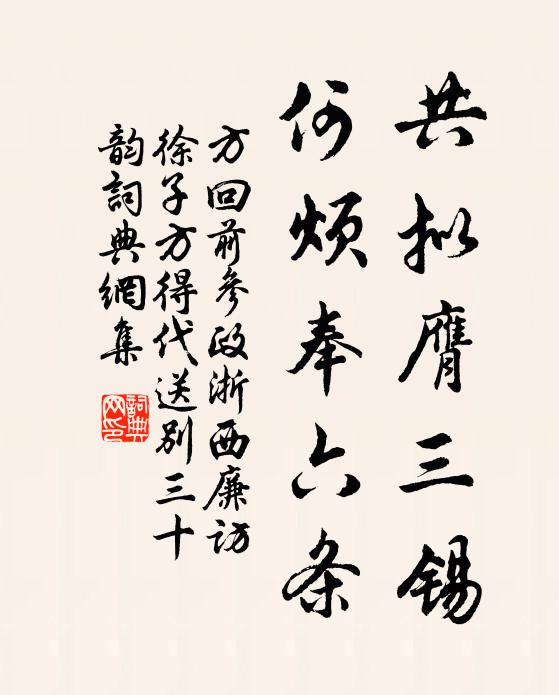 共拟膺三锡
何烦奉六条
方回前參政浙西廉访
徐子方得代送别三十
韵詞典網集
詞典
网印